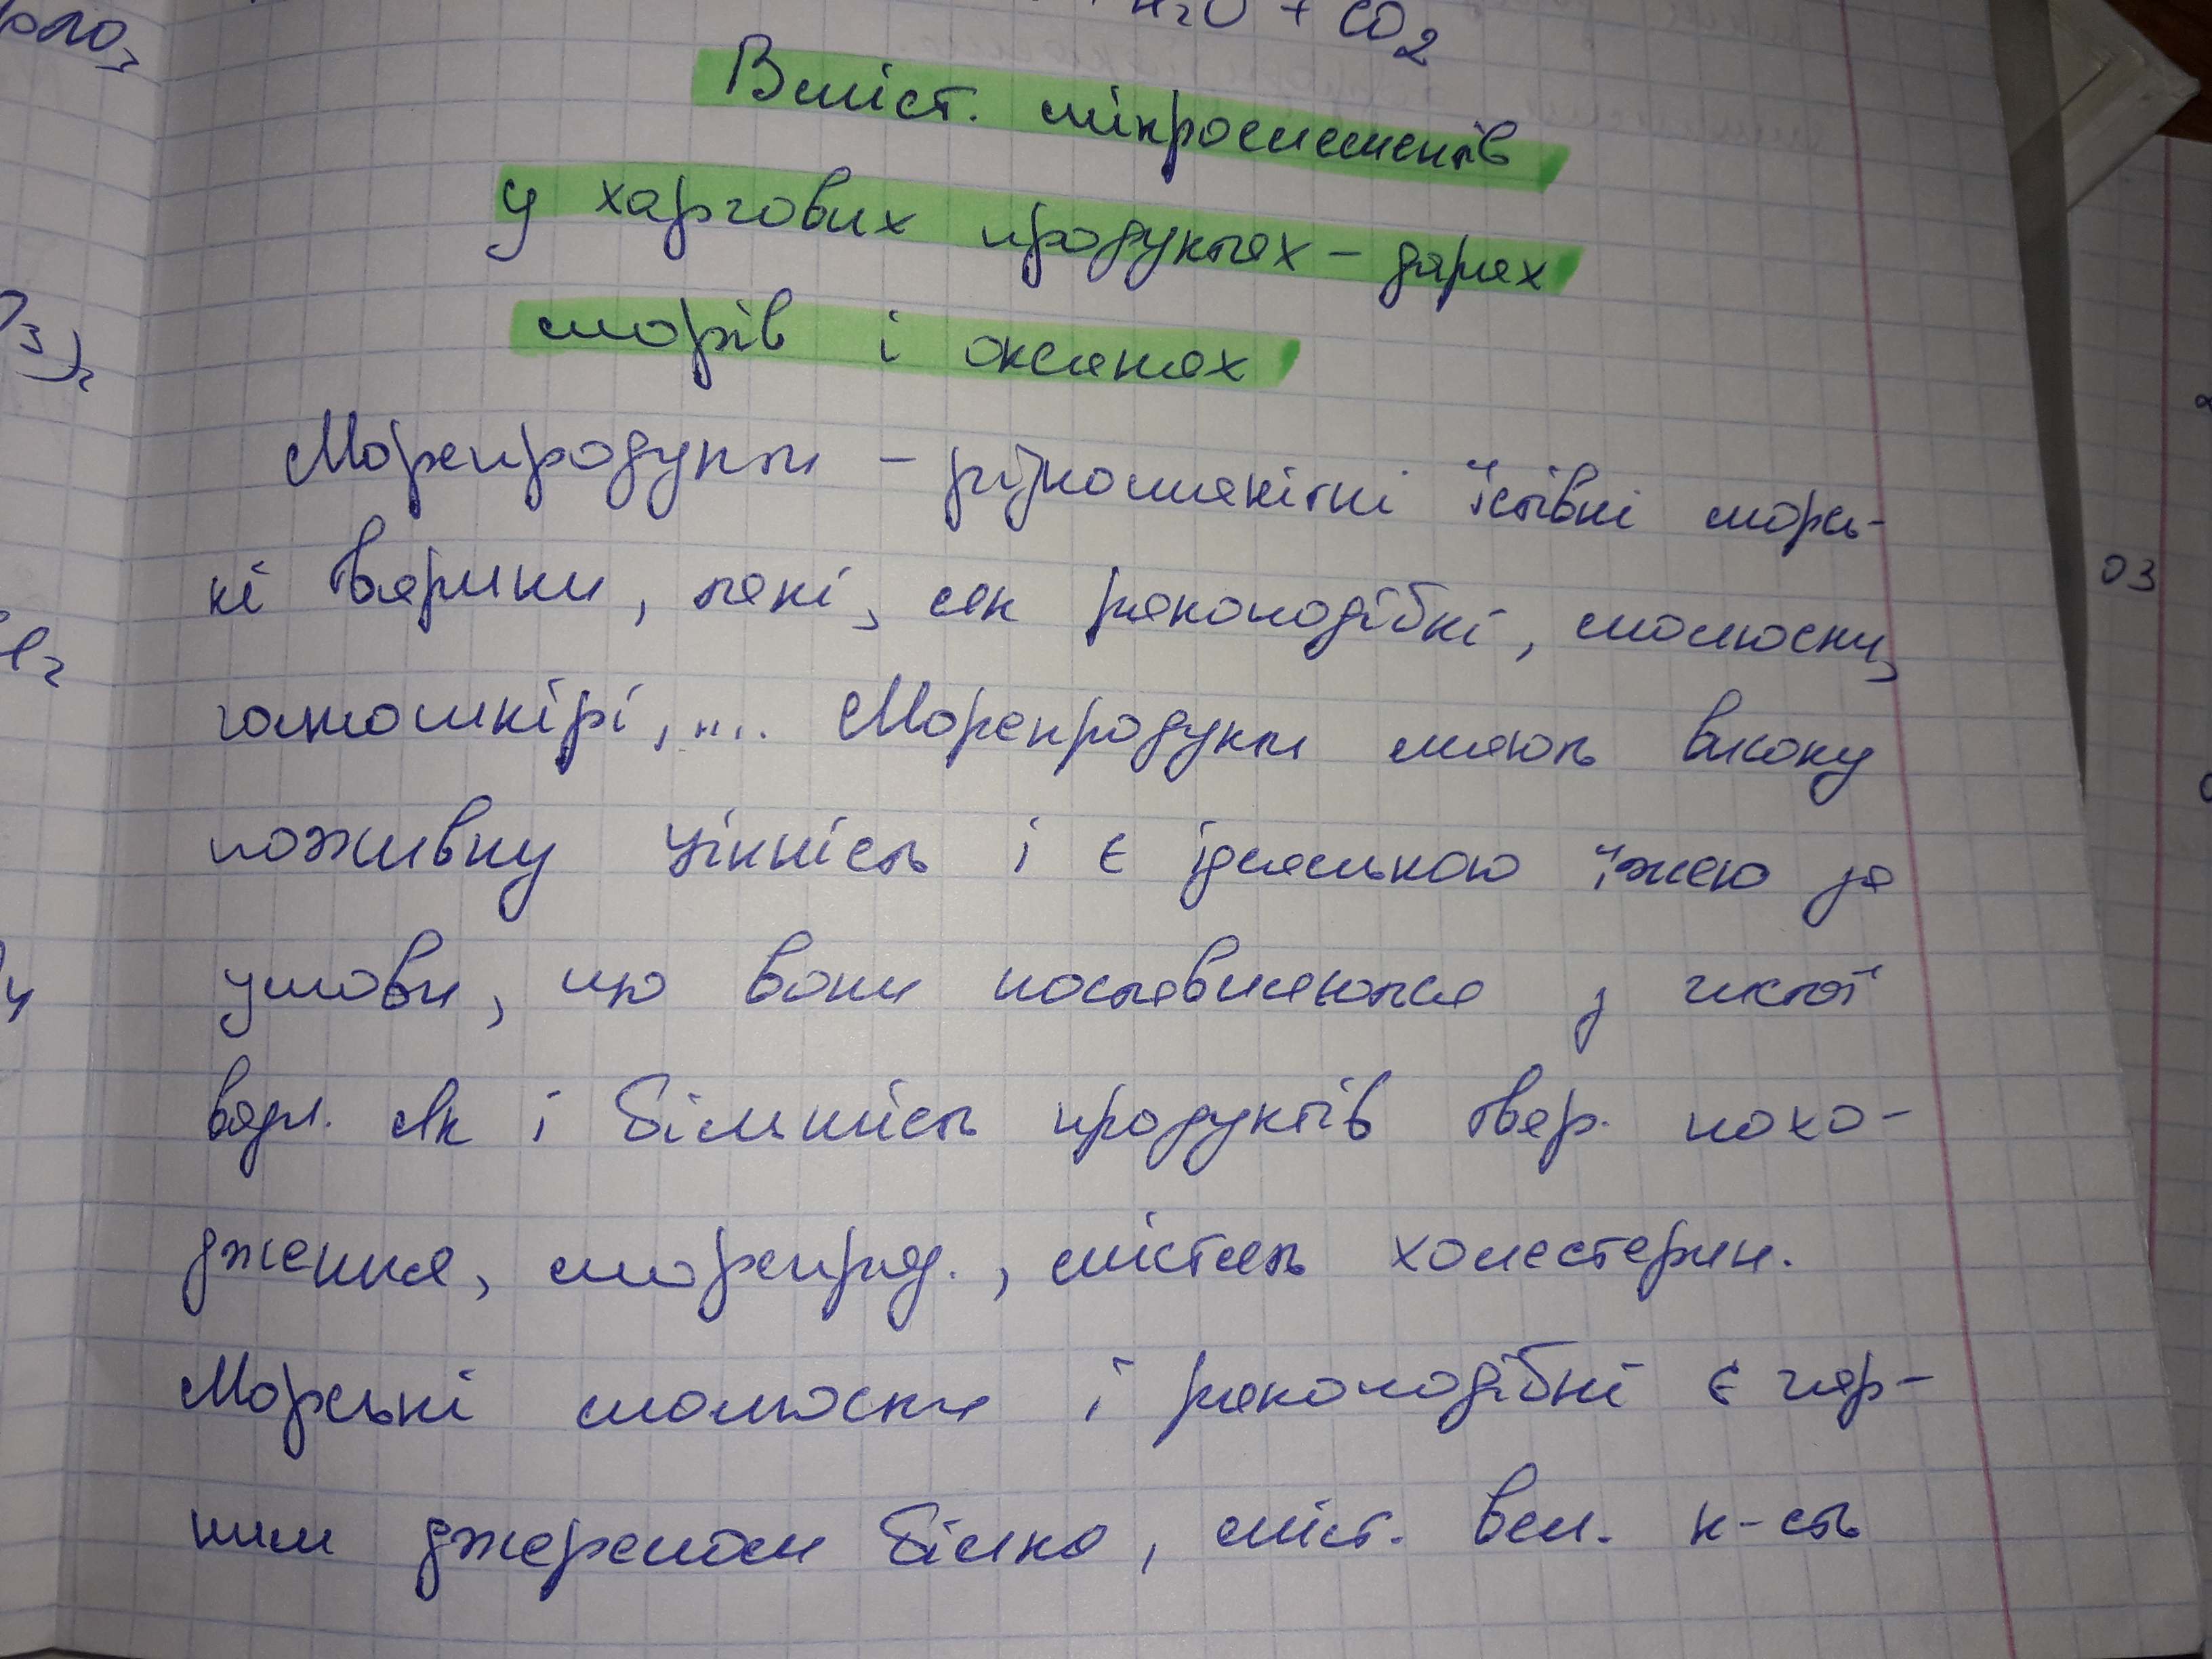 H₂O + CO₂
Вміст. мікроелементів
у харчових продуктах – дарах
морів і океанах
Морепродукти – різноманітні їстівні морсь-
кі тварини, такі, як ракоподібні, молюски,
голкошкірі, .... Морепродукти мають високу
поживну цінність і є ідеальною їжею за
умови, що вони поставляються з чистої
води. Як і більшість продуктів твар. похо-
дження, морепрод., містять холестерин.
Морські молюски і ракоподібні є гар-
ним джерелом білка, міст. вел. к-сть
03